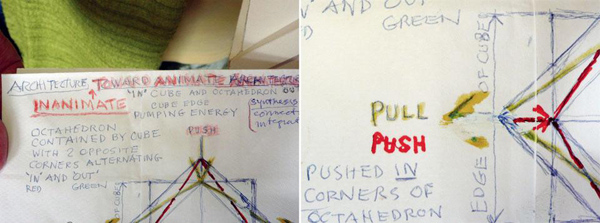 ARCHITECTURE TOWARD ANIMATE ARCHITECTURE
INANIMATE
"IN" CUBE AND OCTAHEDRON
CUBE EDGE
PUMPING ENERGY
OCTAHEDRON
CONTAINED BY CUBE
WITH 2 OPPOSITE
CORNERS ALTERNATING
'IN' AND OUT'
RED GREEN
PUSH
OF CUBE
'N' AND OUT'
RED GREEN
PULL
PUSH
PUSHED IN
CORNERS OF
OCTAHEDRON
EDGE OF CUBE